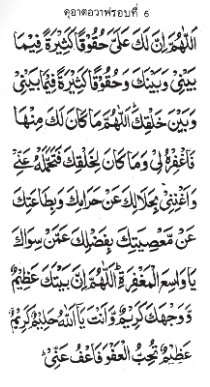 ดุอาตอวาฟรอบที่ 6
اَللّٰهُمَّ اِنَّ لَكَ عَلَىَّ حُقُوْقًا كَثِيْرَةً فِيْمَا
بَيْنِىْ وَبَيْنَكَ وَحُقُوْقًا كَثِيْرَةً فِيْمَا بَيْنِىْ
وَبَيْنَ خَلْقِكَ اَللّٰهُمَّ مَا كَانَ لَكَ مِنْهَا
فَاغْفِرْهُ لِىْ وَمَا كَانَ لِخَلْقِكَ فَتَحَمَّلْهُ عَنِّىْ
وَاَغْنِنِىْ بِحَلَالِكَ عَنْ حَرَامِكَ وَبِطَاعَتِكَ
عَنْ مَّعْصِيَتِكَ بِفَضْلِكَ عَمَّنْ سِوَاكَ
يَا وَاسِعَ الْمَغْفِرَةِ اَللّٰهُمَّ اِنَّ بَيْتَكَ عَظِيْمٌ
وَّوَجْهَكَ كَرِيْمٌ وَّاَنْتَ يَا اَللّٰهُ حَلِيْمٌ كَرِيْمٌ
عَظِيْمٌ تُحِبُّ الْعَفْوَ فَاعْفُ عَنِّىْ